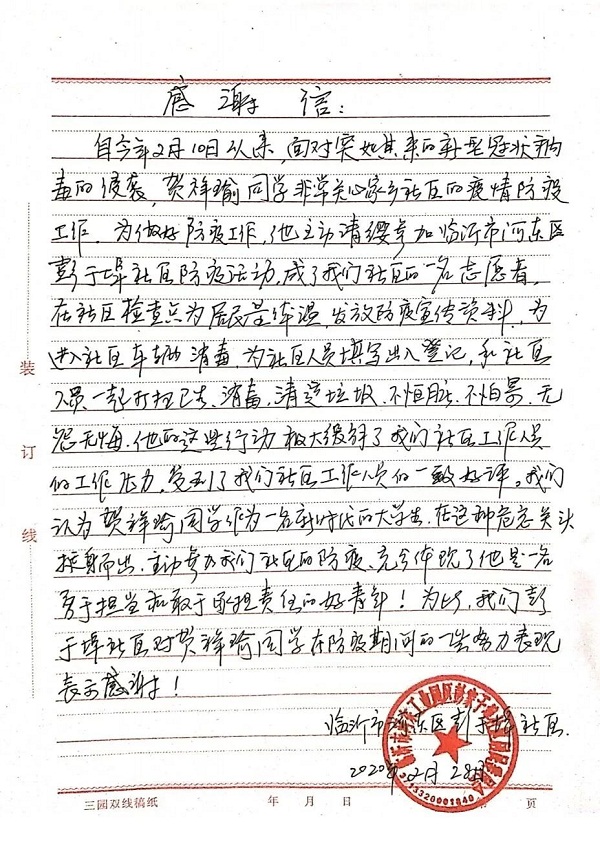 感谢信：
自今年2月10日以来，面对突如其来的新型冠状病
毒的侵袭，贺祥瑜同学非常关心家乡社区的疫情防疫
工作。为做好防疫工作，他主动请缨参加临沂市河东区
彭于埠社区防疫活动，成了我们社区的一名志愿者，
在社区检查点为居民量体温，发放防疫宣传资料，为
进入社区车辆消毒，为社区人员填写出入登记，和社区
人员一起打扫卫生、消毒，清运垃圾，不怕脏，不怕累，无
怨无悔，他的这些行动极大缓解了我们社区工作人员
的工作压力，受到了我们社区工作人员的一致好评。我们
认为贺祥瑜同学作为一名新时代的大学生，在这种危急关头
挺身而出，主动参加我们社区的防疫，充分体现了他是一名
勇于担当和敢于承担责任的好青年！为此，我们彭
于埠社区对贺祥瑜同学在防疫期间的一些努力表现
表示感谢！
临沂市河东区彭于埠社区
2020年02月28日
装
订
线
三园双线稿纸
年 月 日
页